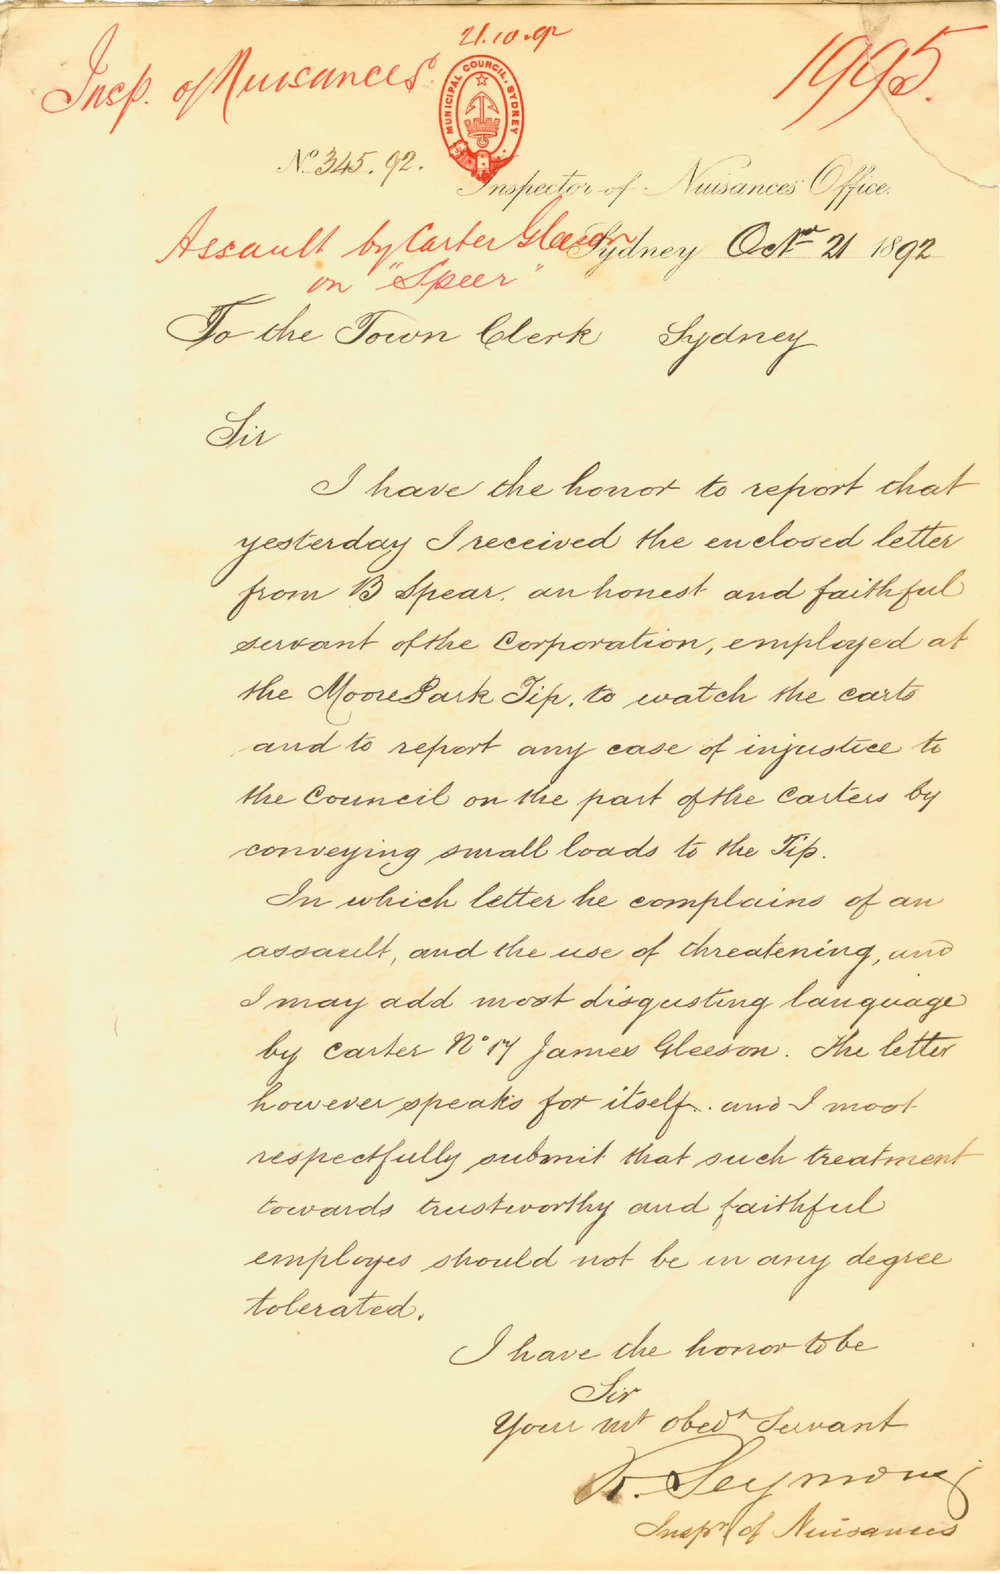 21.10.92
Insp. of Nuisances
1995.
MUNICIPAL COUNCIL. SYDNEY
No 345.92.
Inspector of Nuisances Office.
Assault by Carter Gleeson
on "Speer"
Sydney Octr 21 1892
To the Town Clerk Sydney
Sir
I have the honor to report that
yesterday I received the enclosed letter
from B Spear. an honest and faithful
servant of the Corporation, employed at
the Moore Park Tip. to watch the carts
and to report any case of injustice to
the Council on the part of the Carters by
conveying small loads to the Tip.
In which letter he complains of an
assault, and the use of threatening, and
I may add most disgusting language
by Carter No 17 James Gleeson. The letter
however speaks for itself. and I most
respectfully submit that such treatment
towards trustworthy and faithful
employes should not be in any degree
tolerated.
I have the honor to be
Sir
Your mt obedt Servant
R. Seymour
Inspr of Nuisances